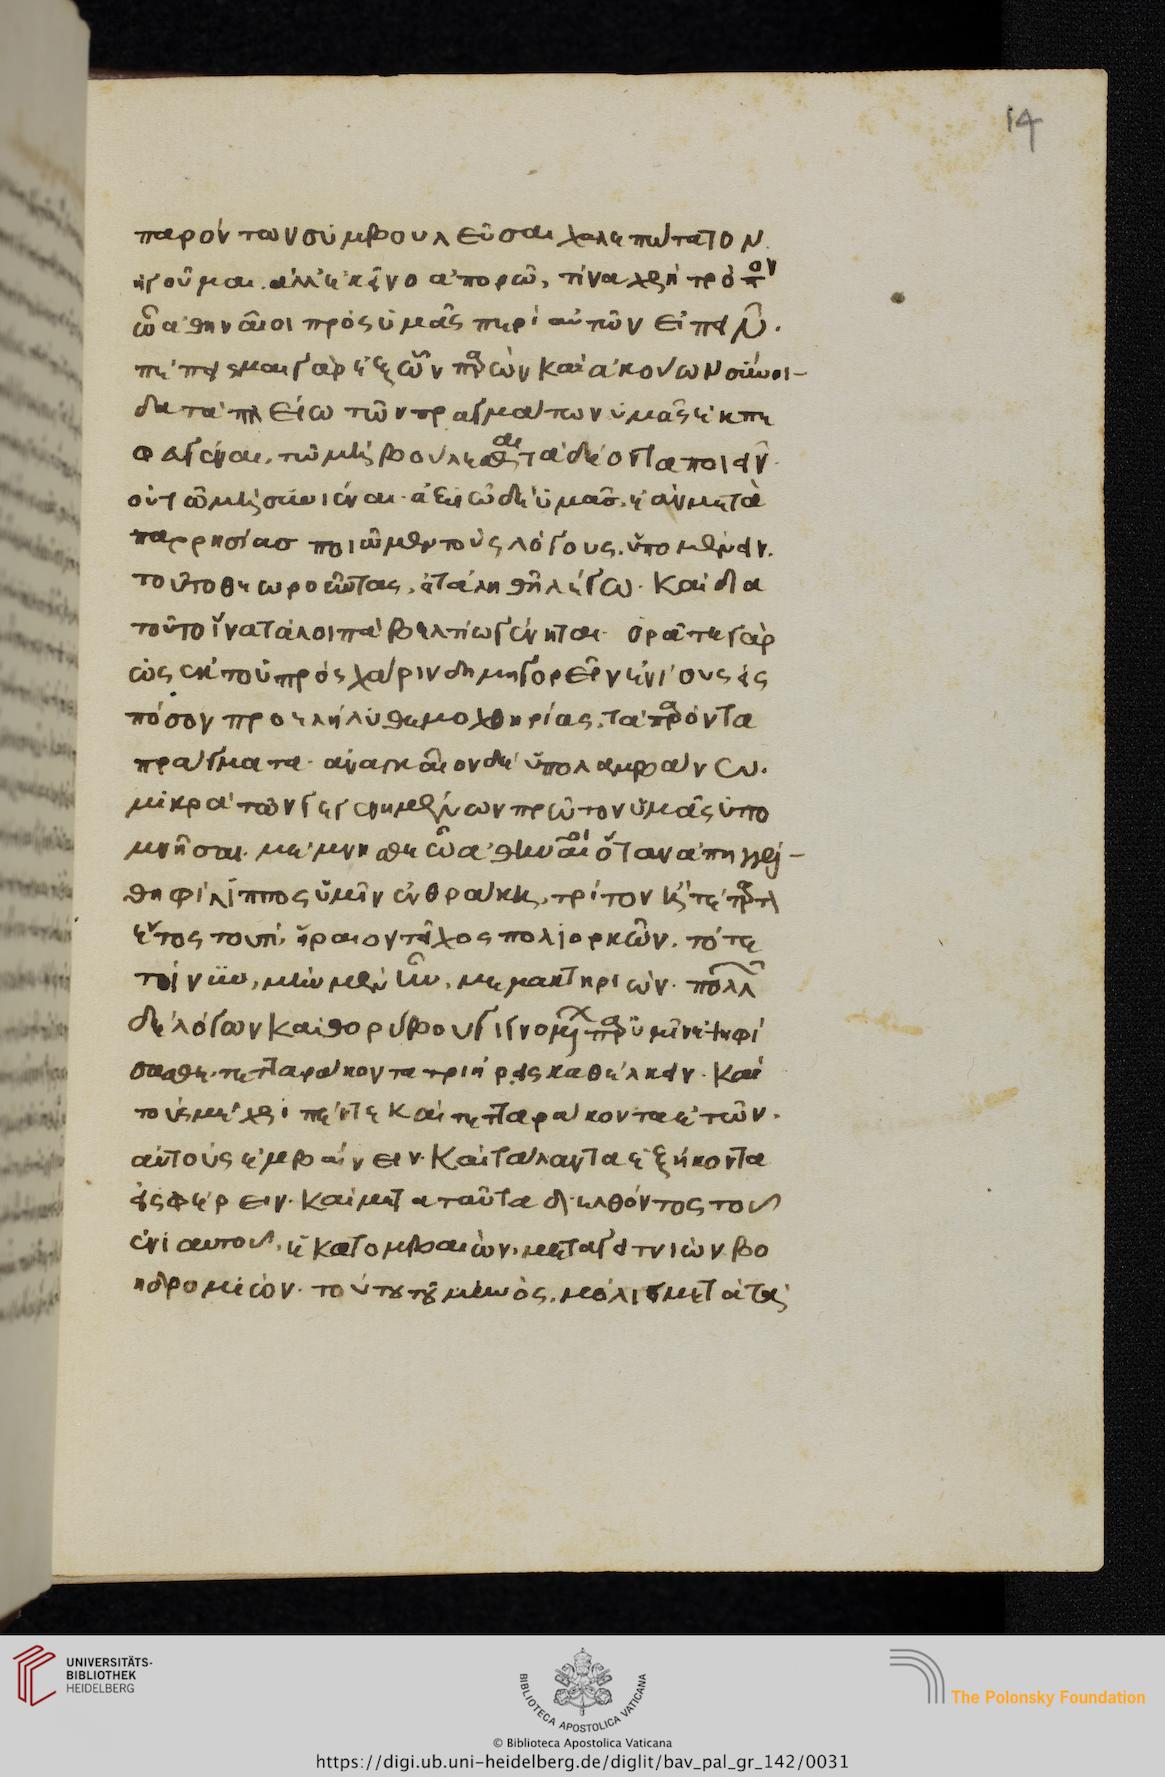 14
παρόντων συμβουλεῦσαι χαλεπώτατον
ἡγοῦμαι. ἀλλ' ἐκεῖνο ἀπορῶ, τίνα χρὴ τρόπον
ὦ ἀθηναῖοι πρὸς ὑμᾶς περὶ αὐτῶν εἰπεῖν.
πέπεισμαι γὰρ ἐξ ὧν παρὼν καὶ ἀκούων σύνοι-
δα τὰ πλείω τῶν πραγμάτων ὑμᾶς ἐκπε
φευγέναι, τῷ μὴ βούλεσθαι τὰ δέοντα ποιεῖν.
οὐ τῷ μὴ συνιέναι. ἀξιῶ δὲ ὑμᾶς, ἐὰν μετὰ
παρρησίας ποιῶμεν τοὺς λόγους, ὑπομένειν.
τοῦτο θεωροῦντας, εἰ τἀληθῆ λέγω. καὶ δια
τοῦτο ἵνα τὰ λοιπὰ βελτίω γένηται. ὁρᾶτε γὰρ
ὡς ἐκ τοῦ πρὸς χάριν δημηγορεῖν ἐνίους εἰς
πόσον προελήλυθε μοχθηρίας, τὰ παρόντα
πράγματα. ἀναγκαῖον δὲ ὑπολαμβάνω.
μικρὰ τῶν γεγενημένων πρῶτον ὑμᾶς ὑπο
μνῆσαι. μέμνησθε ὦ ἀθηναῖοι ὅταν ἀπηγγέλ-
θη φίλιππος ὑμῖν ἐν θράκῃ, τρίτον
ἔτος τουτὶ, ἥραιον τεῖχος πολιορκῶν. τότε
τοίνυν, μὴν μὲν ἦν, μεμακτηριὼν. πολλῶν
δὲ λόγων καὶ θορύβου γιγνομένου παρ' ὑμῖν ἐψηφί
σασθε. τετταράκοντα τριήρεις καθέλκειν. καὶ
τοὺς μέχρι πέντε καὶ τετταράκοντα ἐτῶν.
αὐτοὺς ἐμβαίνειν. καὶ τάλαντα ἑξήκοντα
εἰσφέρειν. καὶ μετὰ ταῦτα διελθόντος τοῦ
ἐνιαυτοῦ, ἑκατομβαιὼν, μεταγειτνιὼν, βο
ηδρομιών. τούτου τοῦ μηνὸς, μόλις μετὰ τὰ
UNIVERSITÄTS-
BIBLIOTHEK
HEIDELBERG
BIBLIOTECA APOSTOLICA VATICANA
The Polonsky Foundation
© Biblioteca Apostolica Vaticana
https://digi.ub.uni-heidelberg.de/diglit/bav_pal_gr_142/0031